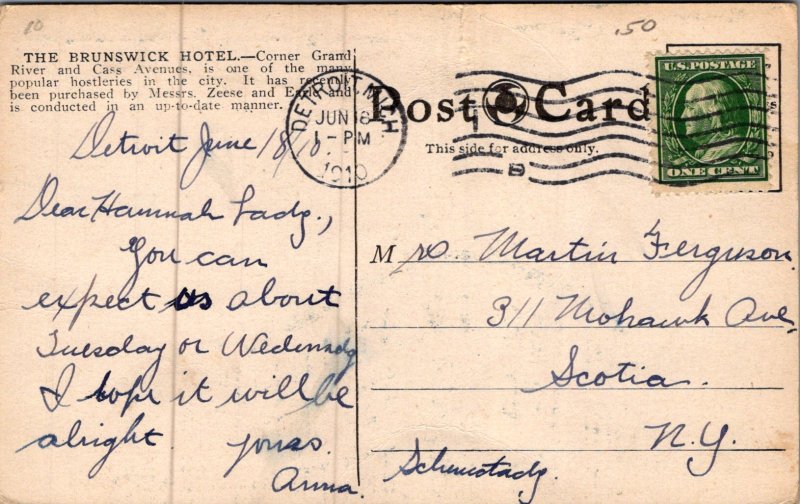 10
.50
THE BRUNSWICK HOTEL.—Corner Grand
River and Cass Avenues, is one of the many
popular hostleries in the city. It has recently
been purchased by Messrs. Zeese and Earle and
is conducted in an up-to-date manner.
DETROIT, MICH
JUN 18
1-PM
1910
Post Card
This side for address only.
U.S. POSTAGE
ONE CENT
Detroit June 18/10.
Dear Hannah Ladg.,
You can
expect us about
Tuesday or Wedensdg
I hope it will be
alright. yours.
Anna.
Mrs. Martin Ferguson.
311 Mohawk Ave,
Scotia.
N.Y.
Schenectady.